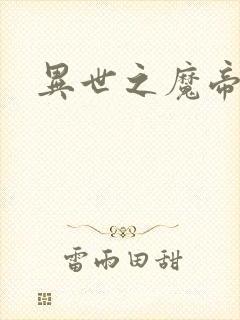 異世之魔帝
雷雨田甜